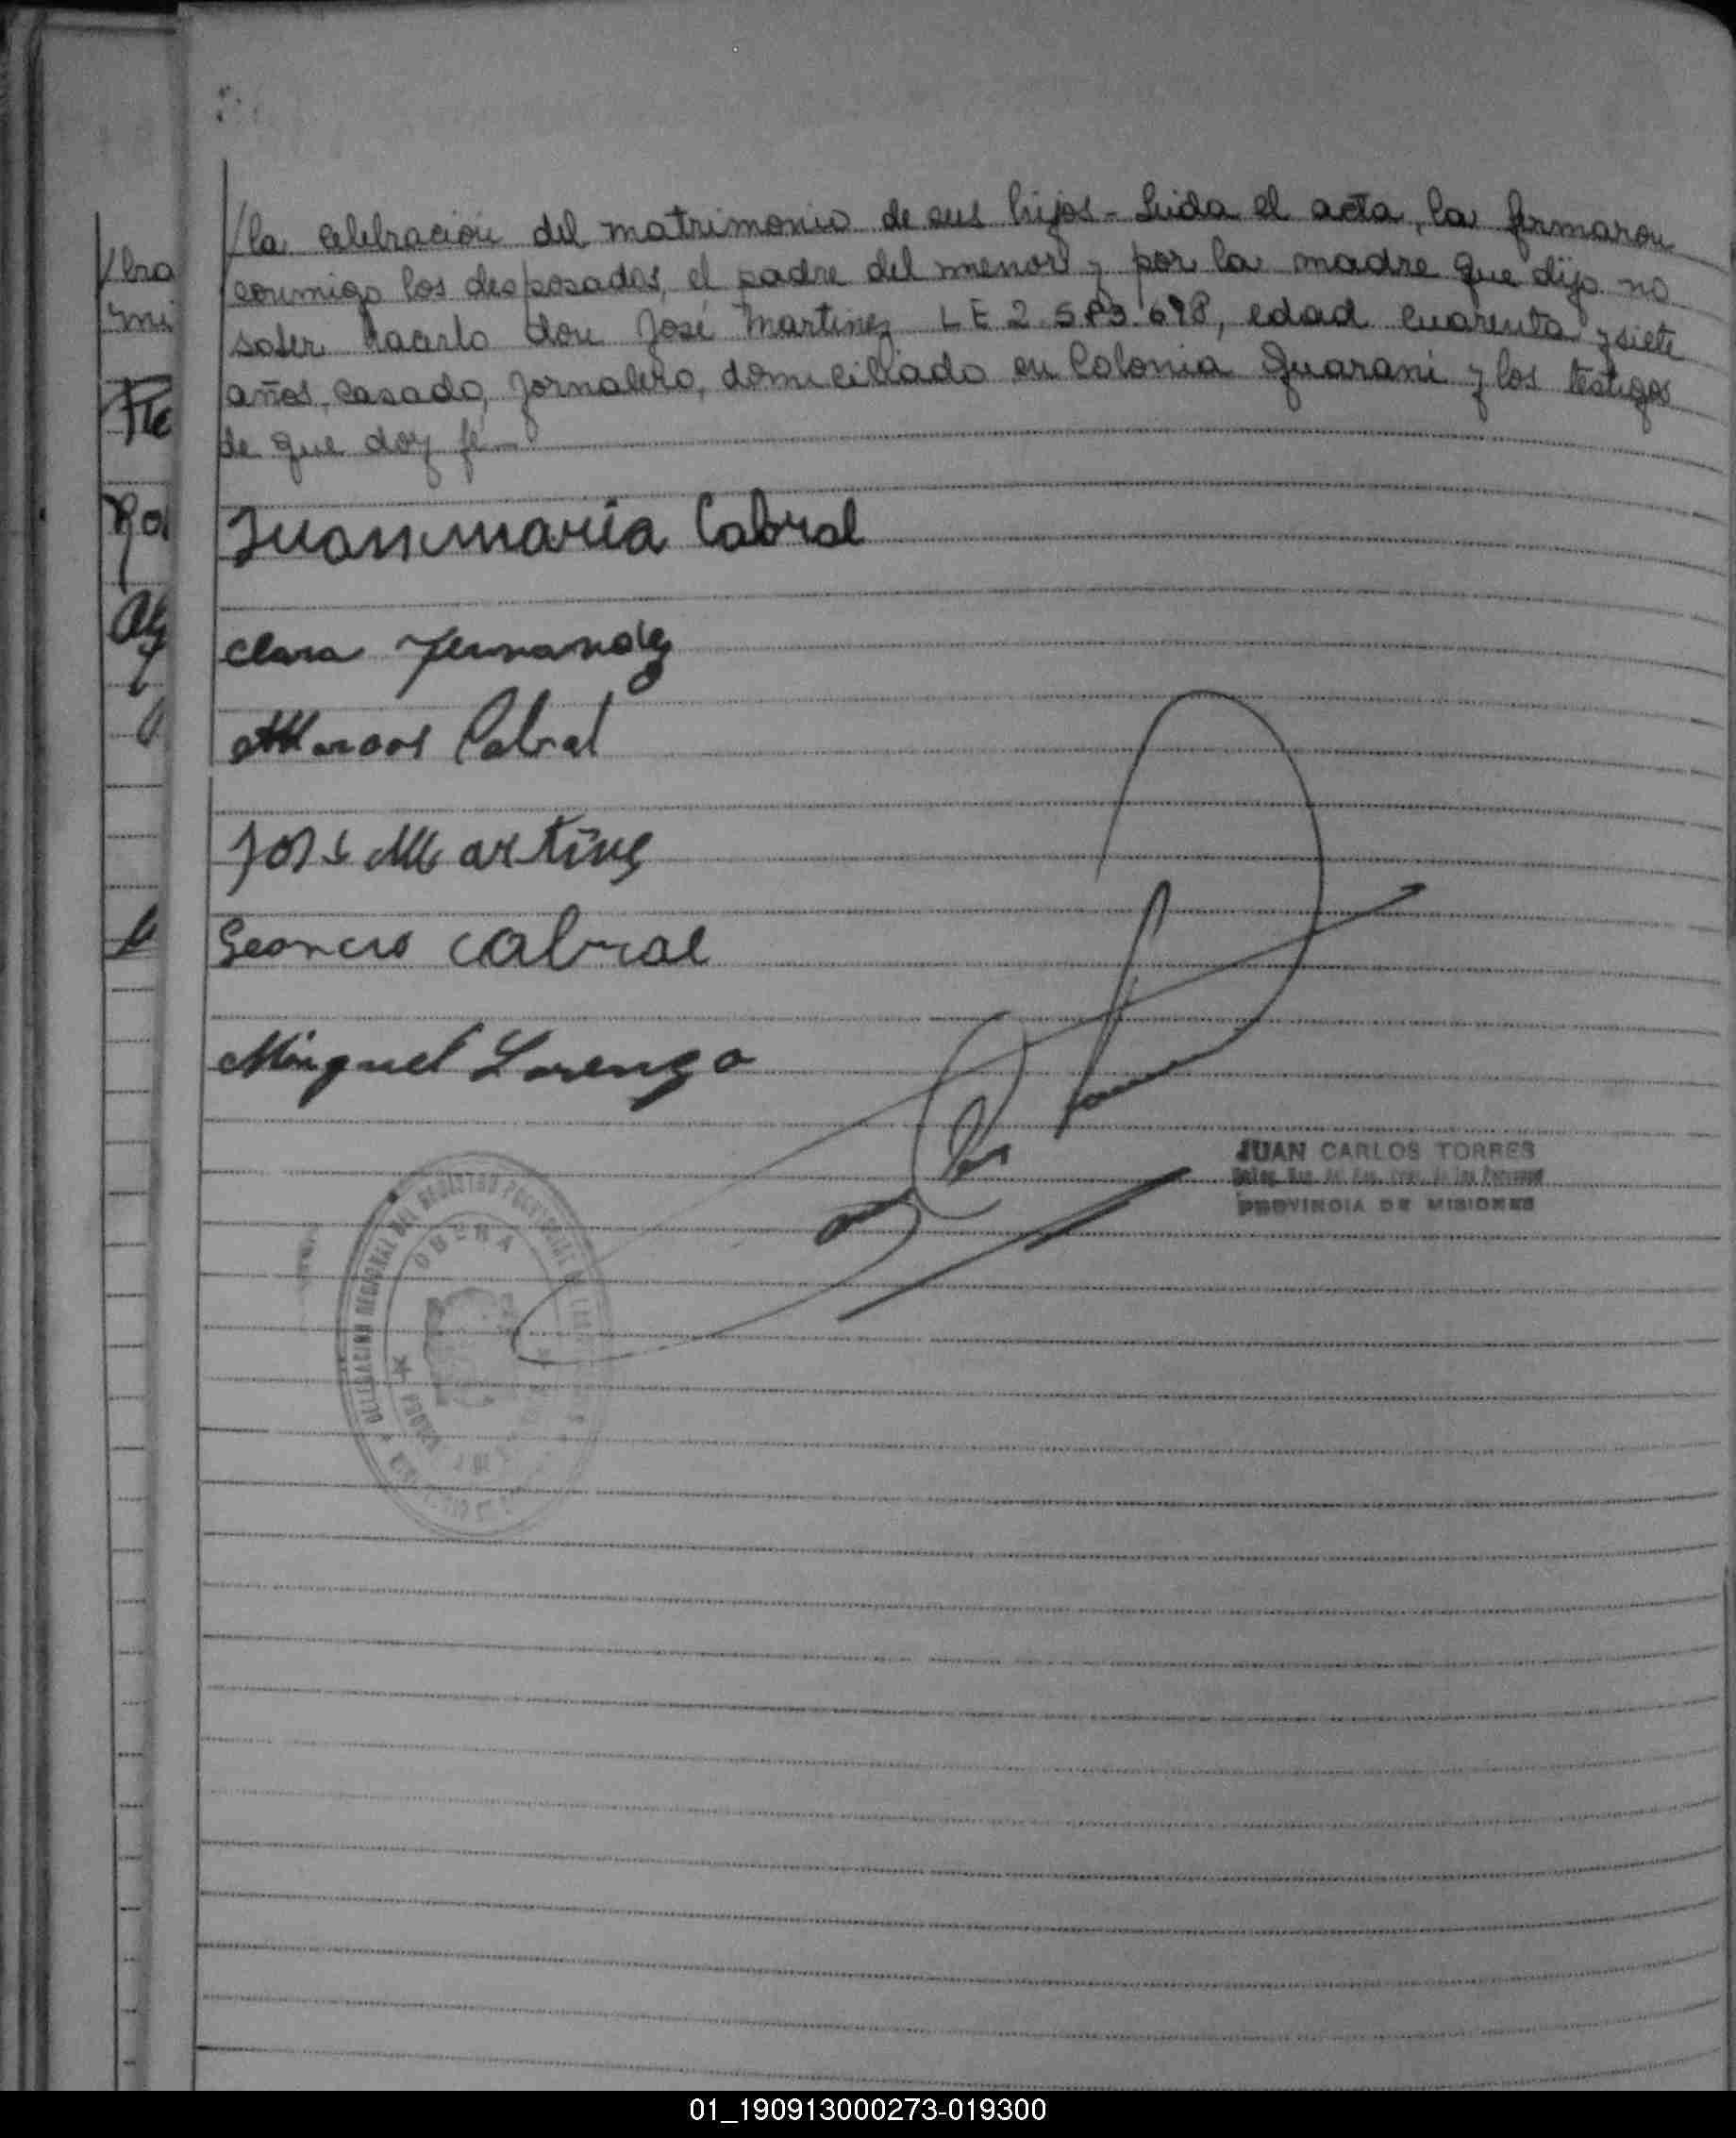 /la celebración del matrimonio de sus hijos - Leida el acta, la firmaron
conmigo los desposados, el padre del menor y por la madre que dijo no
saber hacerlo don José Martinez LE 2.583.698, edad cuarenta y siete
años, casado, jornalero, domiciliado en Colonia Guaraní y los testigos
de que doy fé
Juan maria Cabral
Clara Fernandez
Marcos Cabral
José Martinez
Leoncio Cabral
Miguel Lorenzo
JUAN CARLOS TORRES
PROVINCIA DE MISIONES
DELEGACION REGIONAL DEL REGISTRO PROVINCIAL DE LAS
OBERA
01_190913000273-019300